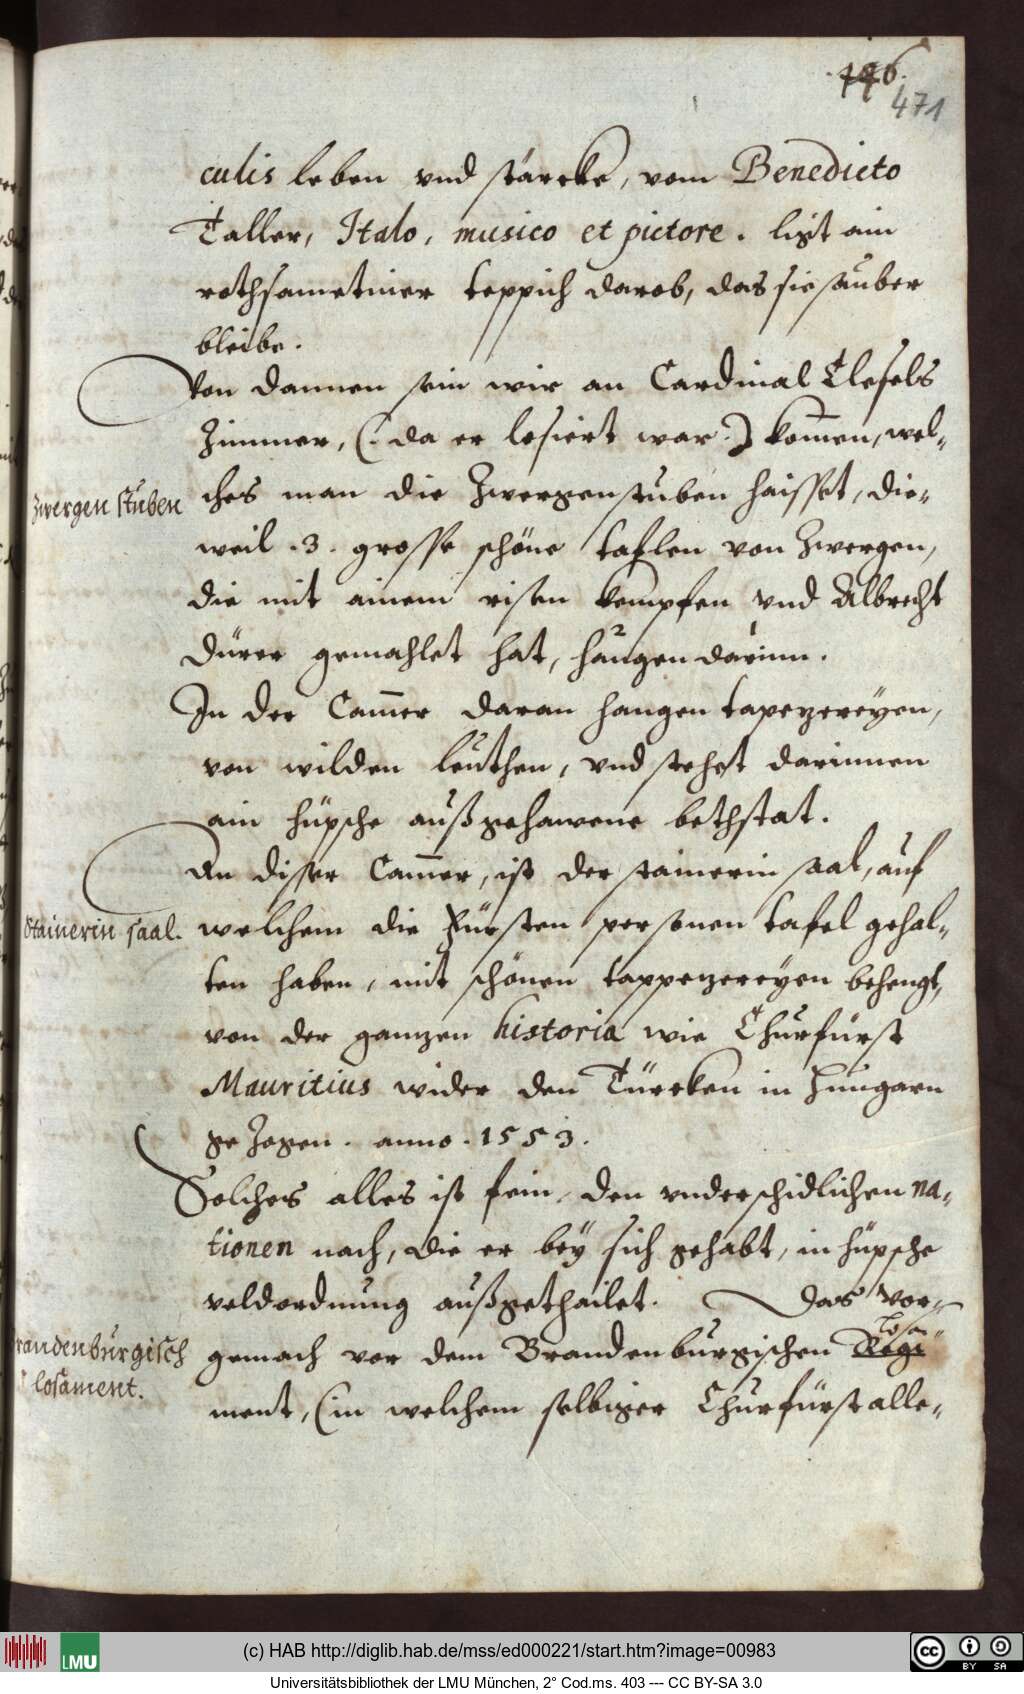 146.
471
culis leben vnd stärcke, vom Benedicto
Taller, Italo, musico et pictore. ligt ain
rothsametiner teppich darob, das sie sauber
bleibe.
Von dannen sein wir an Cardinal Clesels
Zimmer, (: da er losiert war :) kom̄en, wel-
Zwergen stuben
ches man die Zwergenstuben haisset, die-
weil .3. grosse schöne taflen von Zwergen,
die mit ainem risen kempfen vnd Albrecht
Dürer gemahlet hat, hangen darinn.
In der Cam̄er daran hangen tapezereyen,
von wilden leuthen, vnd stehet darinnen
ain hüpsche außgehawene bethstat.
An diser Cam̄er, ist der stainerin saal, auf
Stainerin saal.
welchem die Fürsten personen tafel gehal-
ten haben, mit schönen tappezereyen behengt,
von der ganzen historia wie Churfürst
Mauritius wider den Türcken in Hungarn
gezogen. anno. 1553.
Solches alles ist fein, den vnderschidlichen na-
tionen nach, die er bey sich gehabt, in hüpsche
veldordnung außgethailet. Das vor-
randenburgisch
losament.
losa-
gemach vor dem Brandenburgischen Regi
ment, (in welchem selbiger Churfürst alle-
(c) HAB http://diglib.hab.de/mss/ed000221/start.htm?image=00983
LMU
CC BY SA
Universitätsbibliothek der LMU München, 2° Cod.ms. 403 --- CC BY-SA 3.0